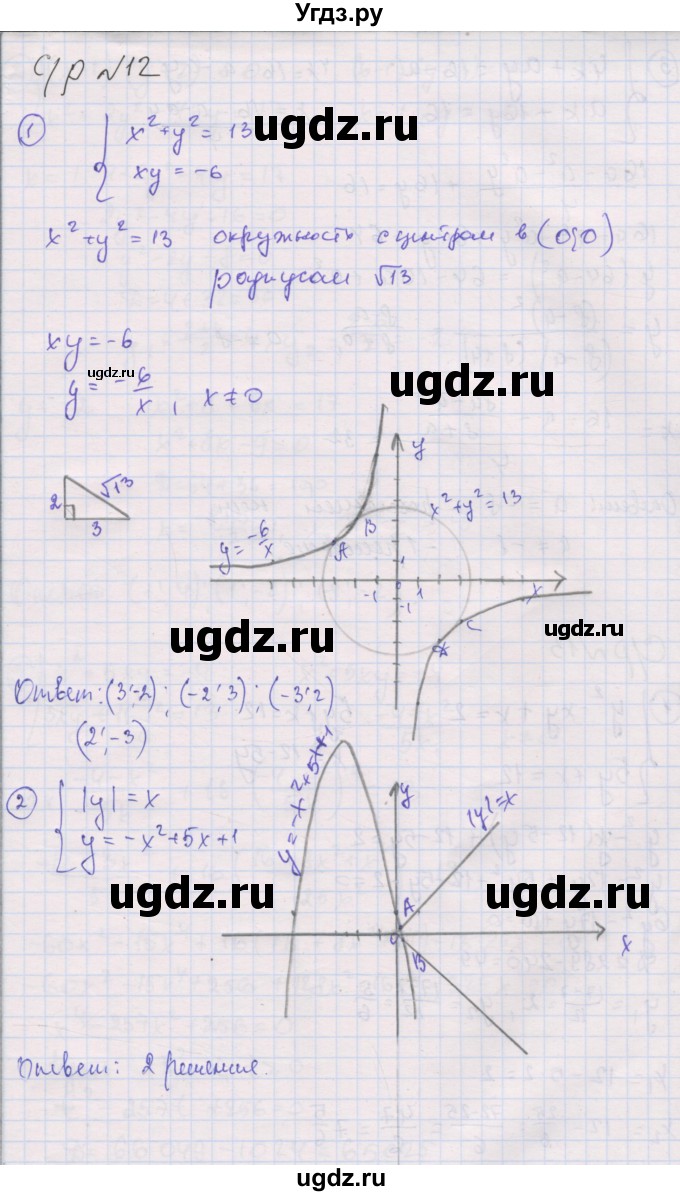 Угдз.ру
С/р №12
① { x² + y² = 13
xy = -6
ugdz.ru
x² + y² = 13 окружность с центром в (0;0)
радиусом √13
xy = -6
ugdz.ru
y = -6/x , x ≠ 0
ugdz.ru
√13
2
3
y
x² + y² = 13
B
y = -6/x
A
1
0
-1
-1
1
x
C
ugdz.ru
ugdz.ru
Ответ: (3;-2); (-2;3); (-3;2)
(2;-3)
② { |y| = x
y = -x² + 5x + 1
y = -x² + 5x + 1
y
|y| = x
ugdz.ru
ugdz.ru
A
B
x
Ответ: 2 решения.
ugdz.ru